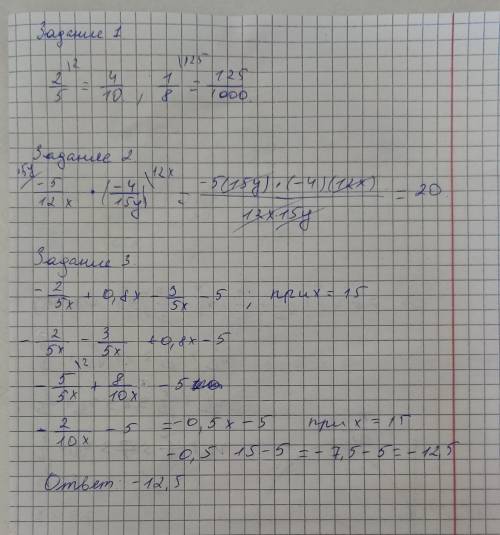 Задание 1
2/5 \2 = 4/10 , 1/8 \125 = 125/1000
Задание 2
15y/ -5/12x · (-4/15y) \12x = -5(15y) · (-4)(12x) / 12x15y = 20
Задание 3
- 2/5x + 0,8x - 3/5x - 5 ; при x = 15
- 2/5x - 3/5x + 0,8x - 5
- 5/5x \2 + 8/10x - 5
- 2/10x - 5 = -0,5x - 5 при x = 15
-0,5 · 15 - 5 = -7,5 - 5 = -12,5
Ответ: -12,5